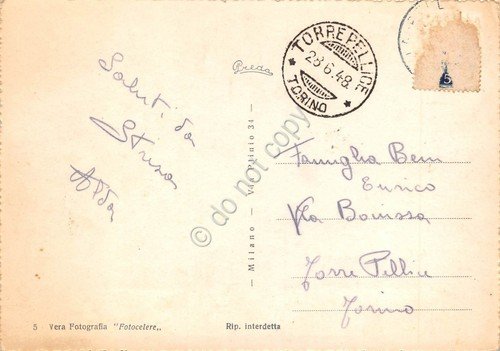 Saluti da
Stresa
Alda
Preda
TORREPELLICE
28.6.48.
TORINO
5
Famiglia Bem
Enrico
Via
Torre Pellice
Torino
Milano - Via Plinio 34
© do not copy
5 Vera Fotografia "Fotocelere„
Rip. interdetta